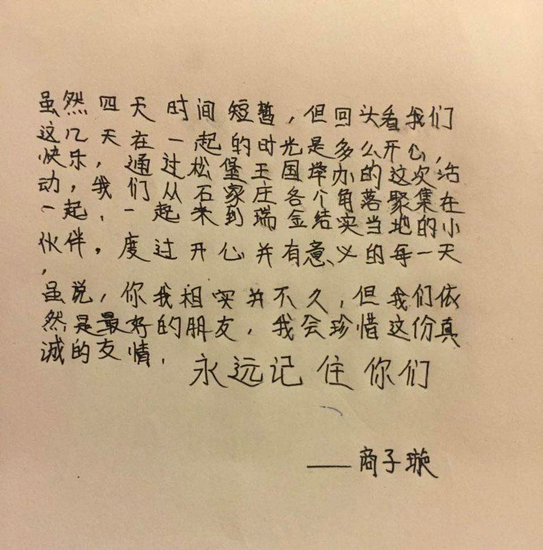 虽然四天时间短暂，但回头看我们
这几天在一起的时光是多么开心，
快乐，通过松堡王国举办的这次活
动，我们从石家庄各个角落聚集在
一起，一起来到瑞金结实当地的小
伙伴。度过开心并有意义的每一天
，
虽说，你我相实并不久，但我们依
然是最好的朋友，我会珍惜这份真
诚的友情，
永远记住你们
——商子璇